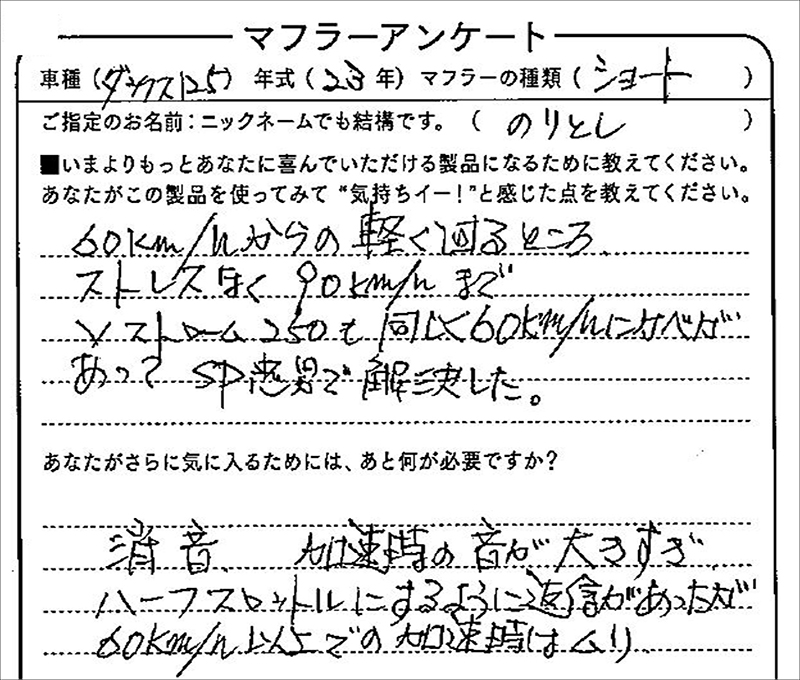 マフラーアンケート
車種(ダックス125) 年式(23年) マフラーの種類(ショート)
ご指定のお名前:ニックネームでも結構です。(のりとし)
■いまよりもっとあなたに喜んでいただける製品になるために教えてください。
あなたがこの製品を使ってみて“気持ちイー!”と感じた点を教えてください。
60km/hからの軽く回るところ、
ストレスなく90km/hまで
Vストローム250も同じく60km/hにカベが
あって SP忠男で解決した。
あなたがさらに気に入るためには、あと何が必要ですか?
消音、加速時の音が大きすぎ、
ハーフスロットルにするように返信があったが
60km/h以上での加速時はムリ、